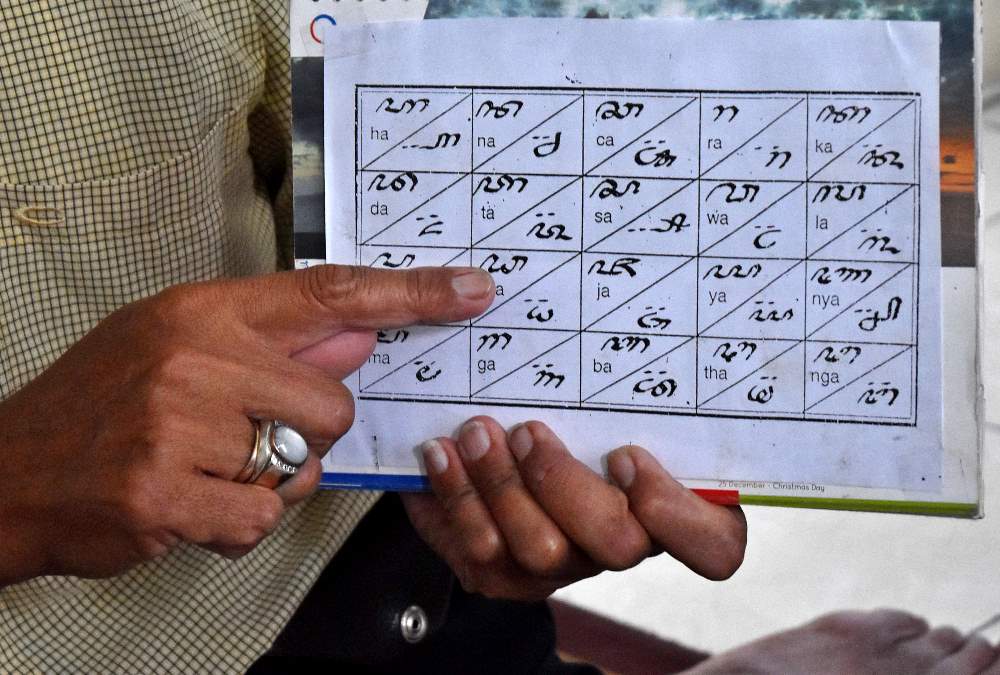 ꦲ ꦤ ꦕ ꦫ ꦏ
ha na ca ra ka
꧀ꦲ ꧀ꦤ ꧀ꦕ ꧀ꦫ ꧀ꦏ
ꦢ ꦠ ꦱ ꦮ ꦭ
da ta sa wa la
꧀ꦢ ꧀ꦠ ꧀ꦱ ꧀ꦮ ꧀ꦭ
ꦥ ꦝ ꦗ ꦪ ꦚ
a ja ya nya
꧀ꦝ ꧀ꦗ ꧀ꦪ ꧀ꦚ
ꦩ ꦒ ꦧ ꦛ ꦔ
ma ga ba tha nga
꧀ꦩ ꧀ꦒ ꧀ꦧ ꧀ꦛ ꧀ꦔ
25 December - Christmas Day